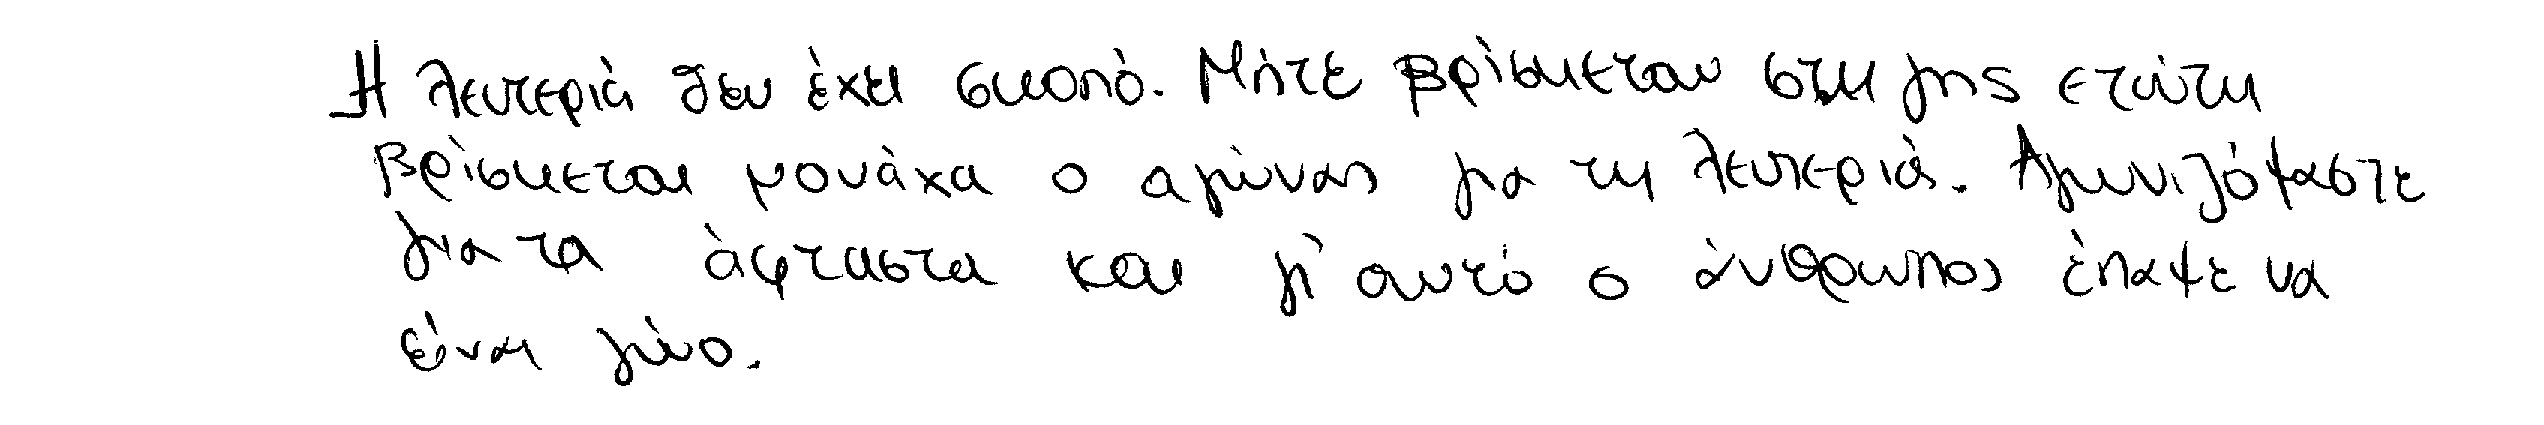 Η λευτεριά δεν έχει σκοπό. Μήτε βρίσκεται στη γης ετούτη
βρίσκεται μονάχα ο αγώνας για τη λευτεριά. Αγωνιζόμαστε
για τα άφταστα και γι' αυτό ο άνθρωπος έπαψε να
είναι ζώο.